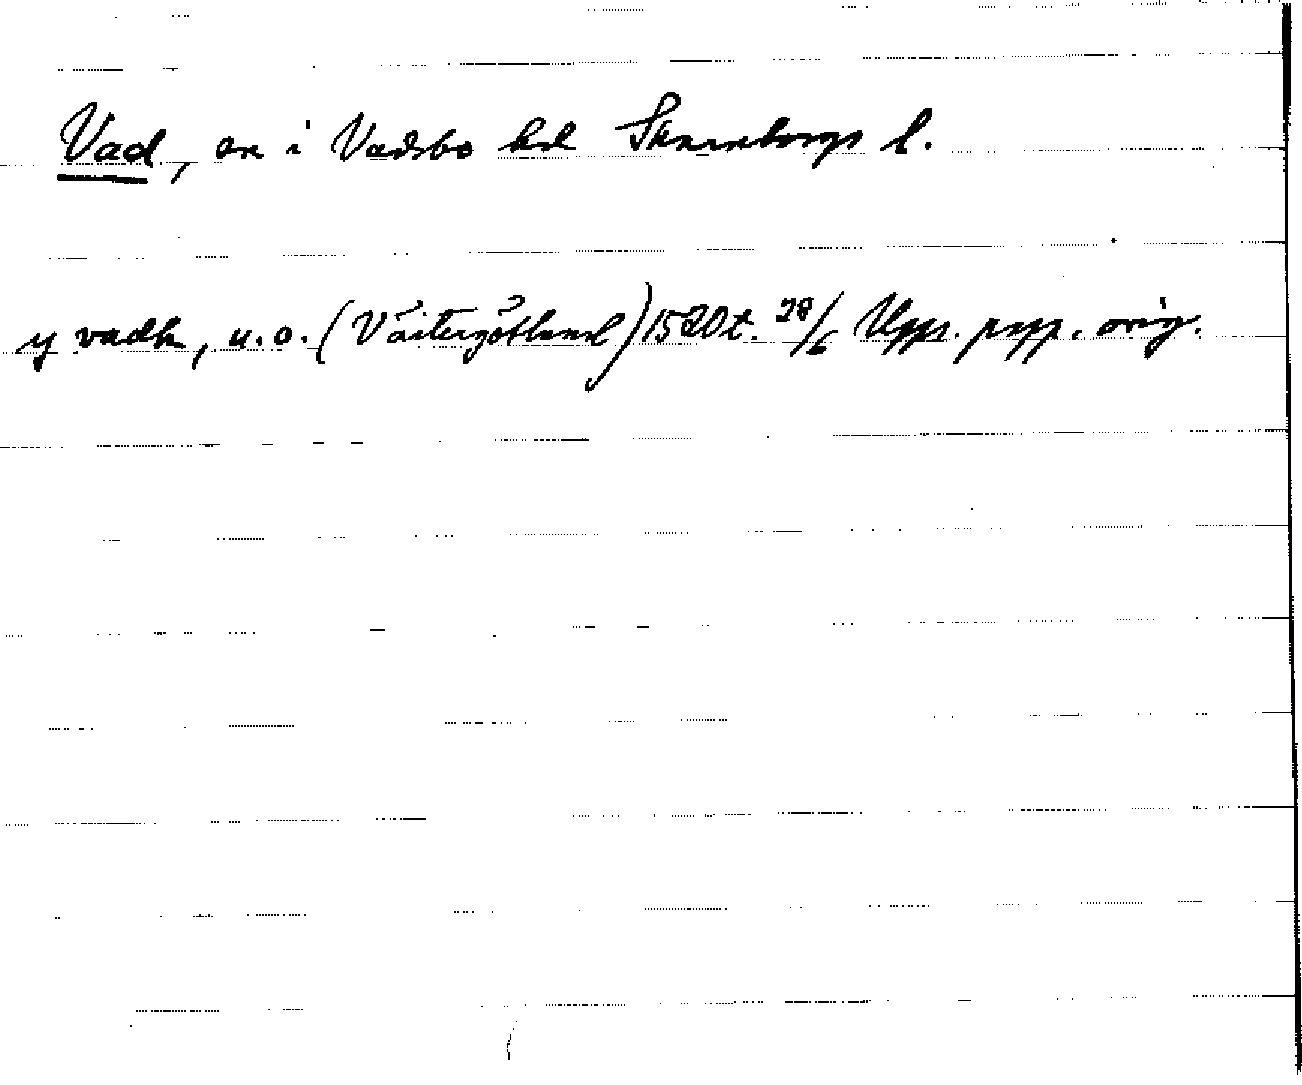 Vad, on i Vadsbo hd Skaraborgs l.
y vadh, u.o. (Västergötland) 1520 t. 28/6 Upps. papp. orig.